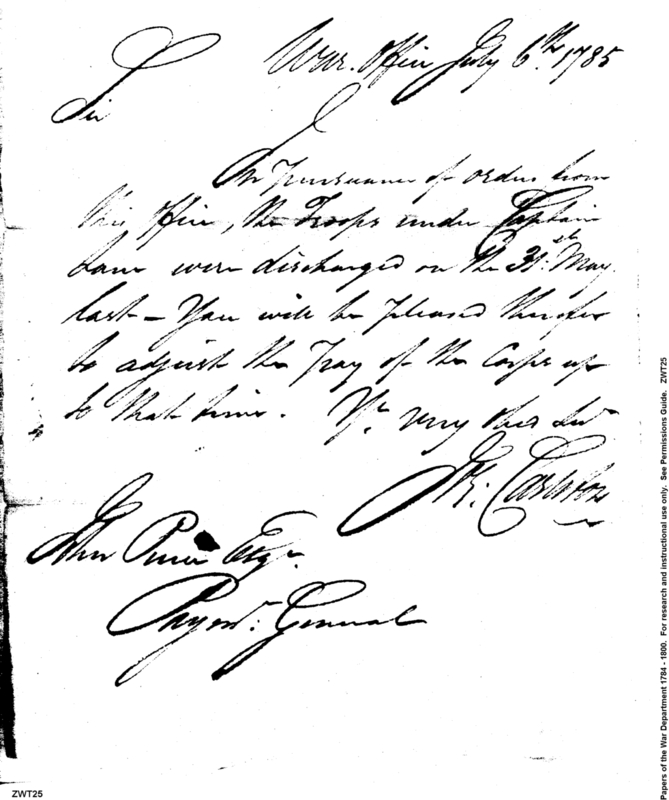 War. Office July 6th. 1785
Sir
In pursuance of orders from
this office, the Troops under Captain
were discharged on the 31st. May
last – You will be pleased therefore
to adjust the Pay of the Corps up
to that time. Yr. very Obed Svt
Js: Carleton
John Pierce Esqr.
Paymr. General
ZWT25
Papers of the War Department 1784 - 1800. For research and instructional use only. See Permissions Guide. ZWT25